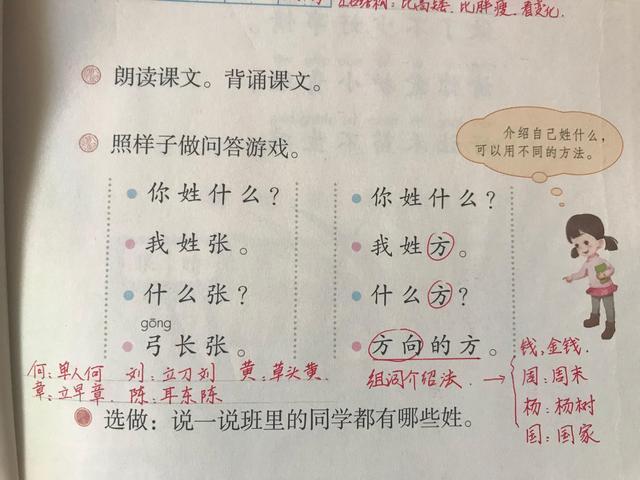 比高矮、比胖瘦、看变化.
朗读课文。背诵课文。
照样子做问答游戏。
介绍自己姓什么，
可以用不同的方法。
你姓什么？
我姓张。
什么张？
gōng
弓长张。
你姓什么？
我姓方。
什么方？
方向的方。
何：单人何 刘：立刀刘 黄：草头黄
章：立早章 陈：耳东陈
组词介绍法 →
钱，金钱.
周：周末
杨：杨树
国：国家
选做：说一说班里的同学都有哪些姓。